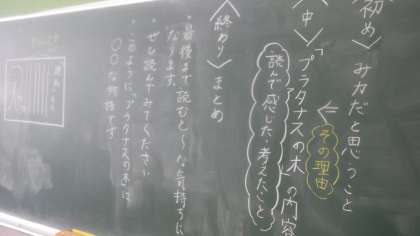 〈初め〉 みりょくだと思うこと
その理由
〈中〉「プラタナスの木」の内容
読んで感じた・考えたこと
〈終わり〉まとめ
・最後まで読むと〜な気持ちに
なります。
・ぜひ読んでみてください
・このように「プラタナスの木」は
〇〇な物語です。